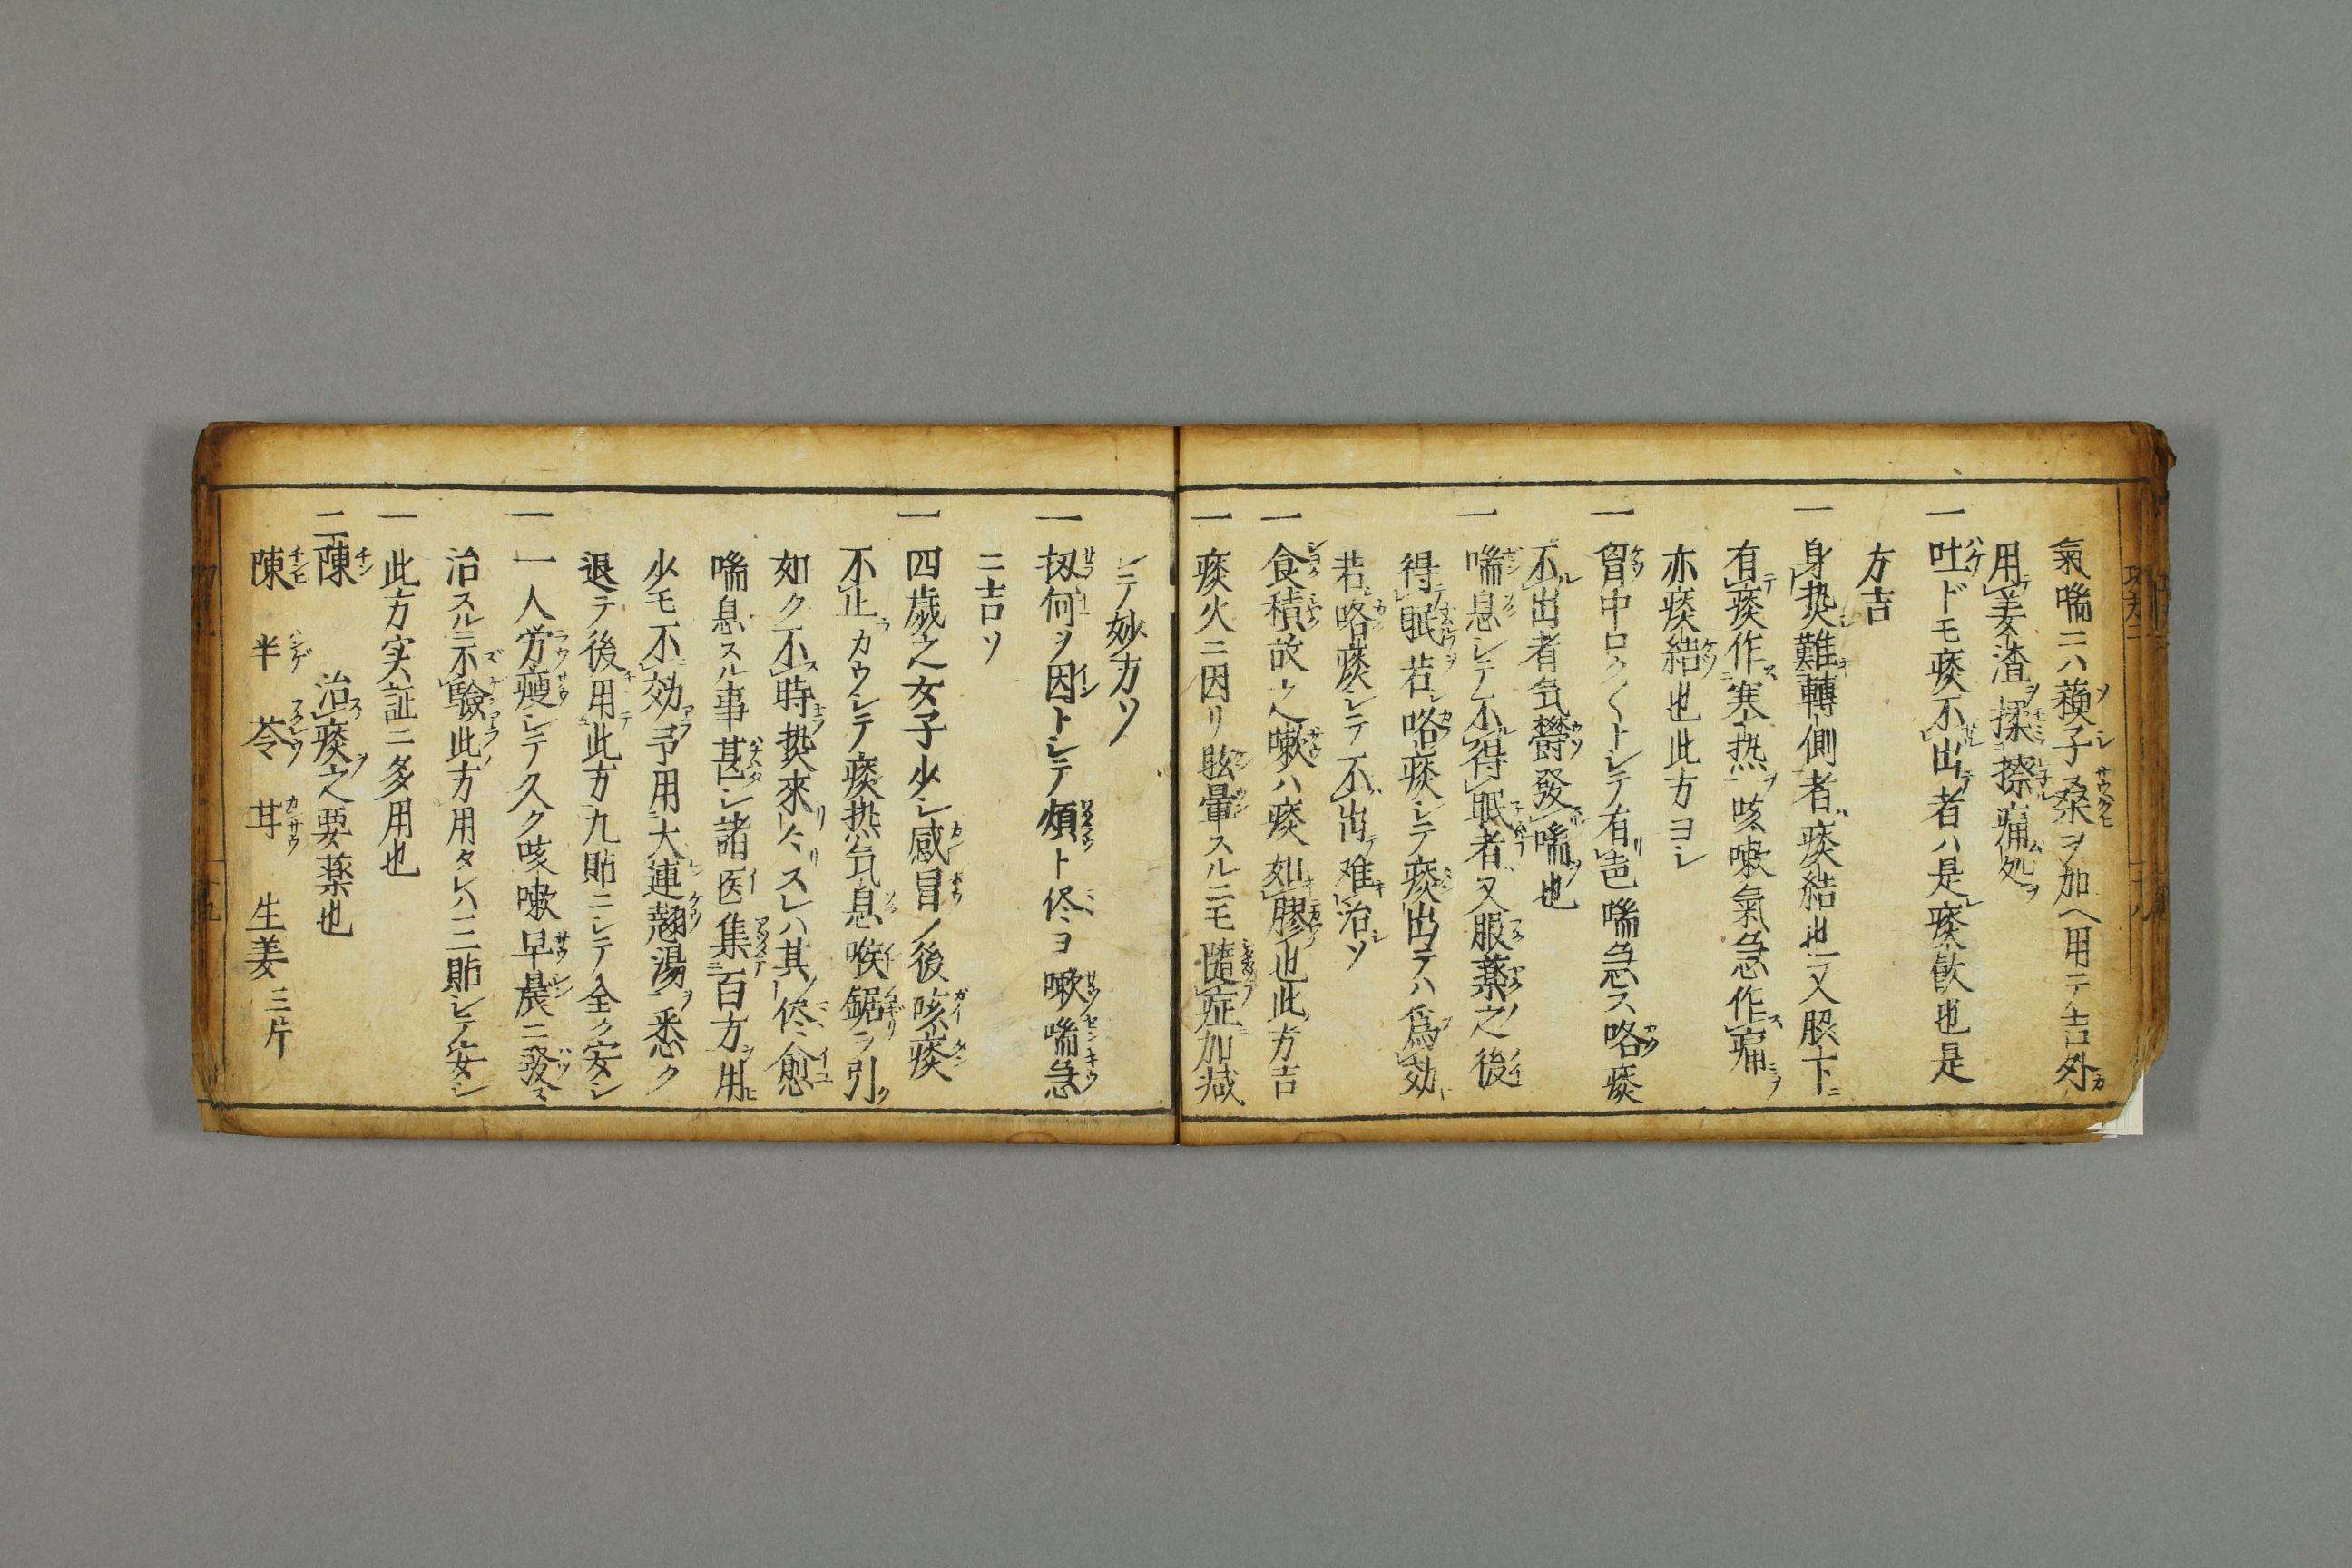 氣喘ニハ蘓子桑ヲ加ヘ用テ吉外
用姜渣揉擦痛処
一吐ドモ痰不出者ハ是痰飲也是
方吉
一身热難轉側者痰結也又脹下
有痰作寒热咳嗽氣急作痛
亦痰結也此方ヨシ
一胷中ロク〱トシテ有声喘急ス咯痰
不出者気欝發喘也
一喘息シテ不得眠者又服薬之後
得眠若咯痰シテ痰出テハ為効
若咯痰シテ不出难治ソ
一食積故之嗽ハ痰如膠也此方吉
一痰火ニ因リ眩暈スルニモ隨症加减
シテ妙方ソ
一扨何ヲ因トシテ煩ト侭ヨ嗽喘急
ニ吉ソ
一四歳之女子少シ感冒ノ後咳痰
不止カウシテ痰热気息喉鋸ヲ引
如ク不時热來スレハ其侭愈
喘息スル事甚シ諸医集百方用
少モ不効予用大連翹湯悉ク
退テ後用此方九貼ニシテ全ク安シ
一一人労痩シテ久ク咳嗽早晨ニ發ス
治スルニ不驗此方用タレハ三貼シテ安シ
一此方实証ニ多用也
二陳 治痰之要薬也
陳 半 苓 甘 生姜三片